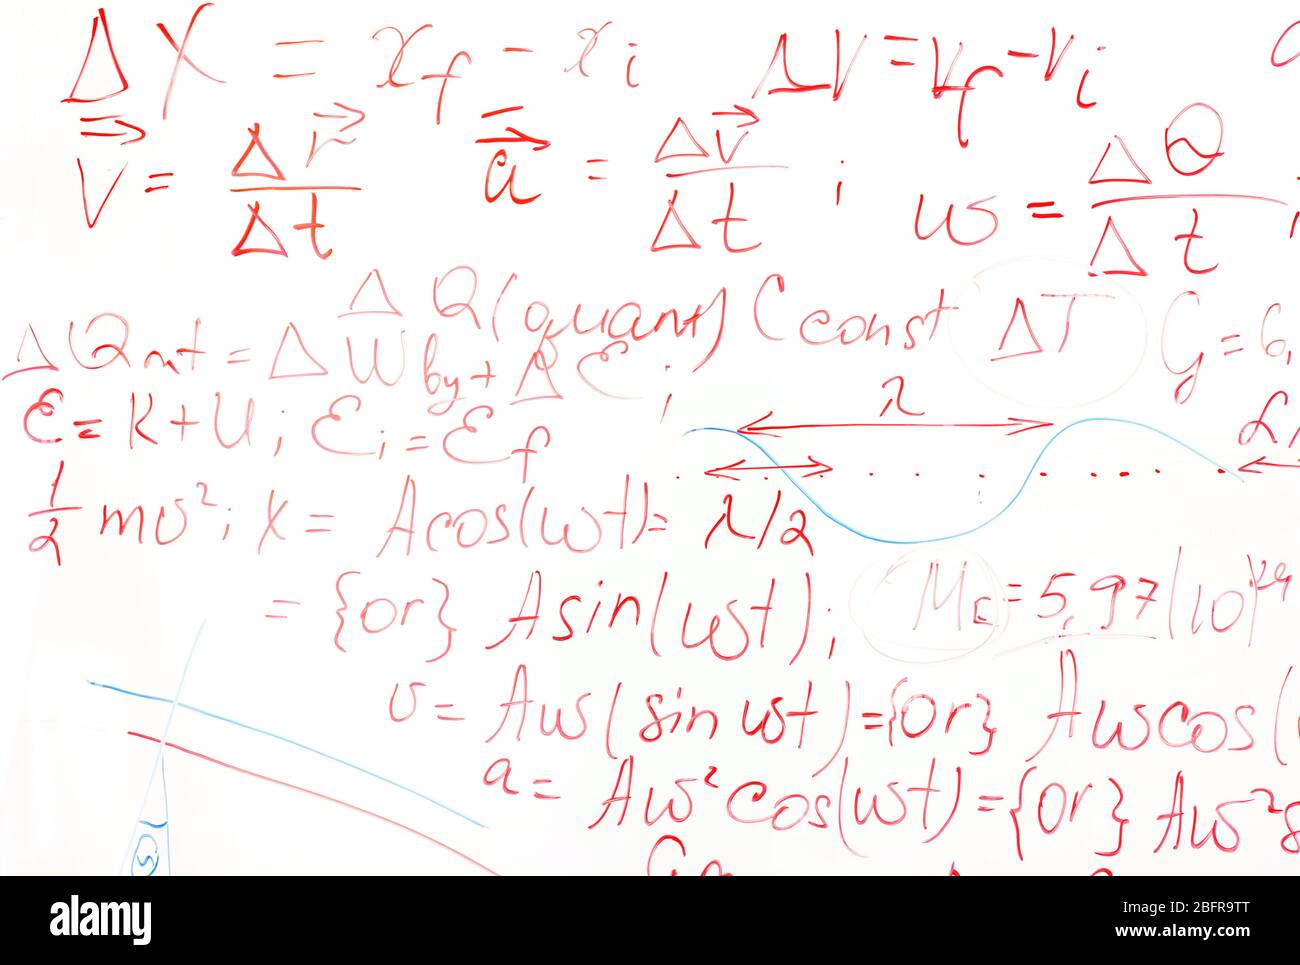 ΔX = x_f - x_i   ΔV = V_f - V_i
V⃗ = Δr⃗/Δt   a⃗ = Δv⃗/Δt ;   ω = ΔQ/Δt ;
ΔQ(quant) C const ΔT   G = 6,
ΔQ = ΔW by + Δℰ ;
ℰ = K + U ; ℰi = ℰf   λ
1/2 mv² ; X = A cos(ωt) =   λ/2
= {or} A sin(ωt) ;   M = 5,97 (10)
v = Aω(sin ωt) = {or} Aωcos(
a = Aω² cos(ωt) = {or} Aω²s
alamy
Image ID: 2BFR9TT
www.alamy.com